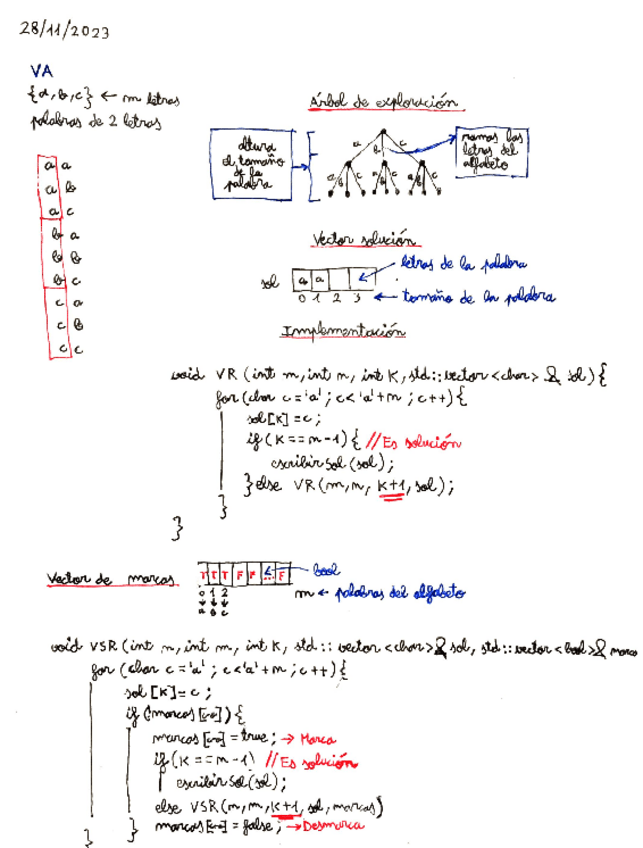 28/11/2023
VA
{a, b, c} ← m letras
palabras de 2 letras
a a
a b
a c
b a
b b
b c
c a
c b
c c
Árbol de exploración
altura
el tamaño
de la
palabra
a b c
a b c a b c a b c
ramas las
letras del
alfabeto
Vector solución
sol a a ← letras de la palabra
0 1 2 3 ← tamaño de la palabra
Implementación
void VR (int n, int m, int K, std::vector<char> & sol) {
for (char c = 'a'; c < 'a'+m; c++) {
sol[K] = c;
if (K == n-1) { // Es solución
escribirSol (sol);
} else VR (n, m, K+1, sol);
}
}
Vector de marcas T T T F F ... F ← bool
0 1 2 m ← palabras del alfabeto
a b c
void VSR (int n, int m, int K, std::vector<char> & sol, std::vector<bool> & marcas
for (char c = 'a'; c < 'a'+m; c++) {
sol [K] = c;
if (!marcas [c-a]) {
marcas [c-a] = true; → Marca
if (K == n-1) // Es solución
escribirSol (sol);
else VSR (n, m, K+1, sol, marcas)
} marcas [c-a] = false; → Desmarca
}
}